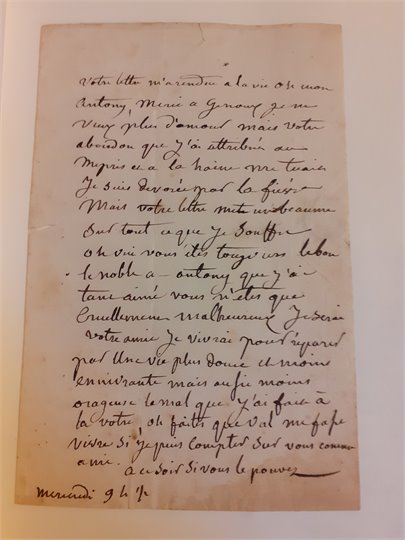 votre lettre m'a rendue a la vie oh mon
antony, merci a genoux je ne
veux plus d'amour mais votre
abandon que j'ai attribuée au
mepris et a la haine me tuait
Je suis devorée par la fièvre
Mais votre lettre met un beaume
sur tout ce que je souffre
oh oui vous êtes toujours le bon
le noble a - antony que j'ai
tant aimé vous n'êtes que
cruellement malheureux Je serai
votre amie Je vivrai pour réparer
par une vie plus douce et moins
ennivrante mais aussi moins
orageuse le mal que j'ai fait à
la votre, oh faites que val me fasse
vivre si je puis compter sur vous comme
amie.
à ce soir si vous le pouvez
mercredi 9 h ½